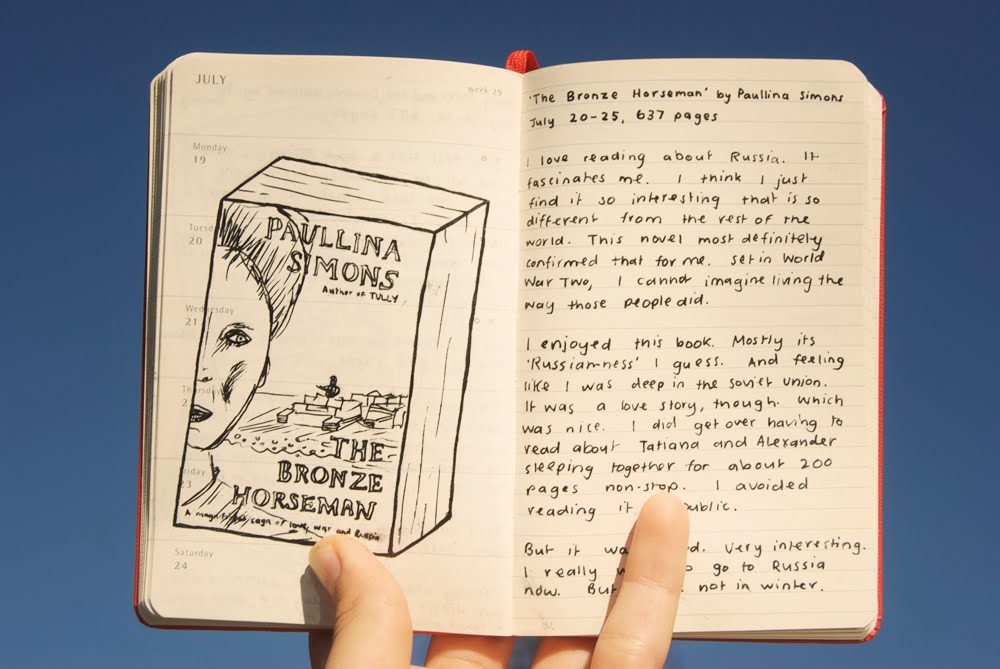 JULY
week 29
Monday
19
Tuesd
20
Wednesday
21
Thursday
riday
23
Saturday
24
PAULLINA
SIMONS
Author of TULLY
THE
BRONZE
HORSEMAN
A saga of love, war and Russia
'The Bronze Horseman' by Paullina Simons
July 20-25, 637 pages
I love reading about Russia. It
fascinates me. I think I just
find it so interesting that is so
different from the rest of the
world. This novel most definitely
confirmed that for me. Set in World
War Two, I cannot imagine living the
way those people did.
I enjoyed this book. Mostly its
'Russian-ness' I guess. And feeling
like I was deep in the Soviet Union.
It was a love story, though. Which
was nice. I did get over having to
read about Tatiana and Alexander
sleeping together for about 200
pages non-stop. I avoided
reading it ublic.
But it wa d. Very interesting.
I really o go to Russia
now. But not in winter.